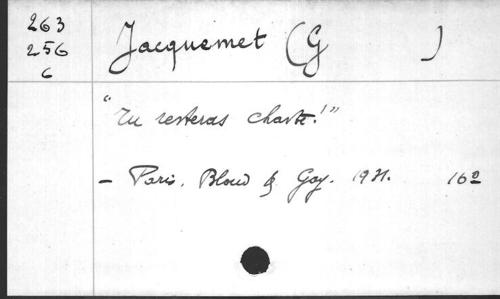 263
256
6
Jacquemet (G )
"Tu resteras chaste!"
- Paris. Bloud & Gay. 1931. 16º